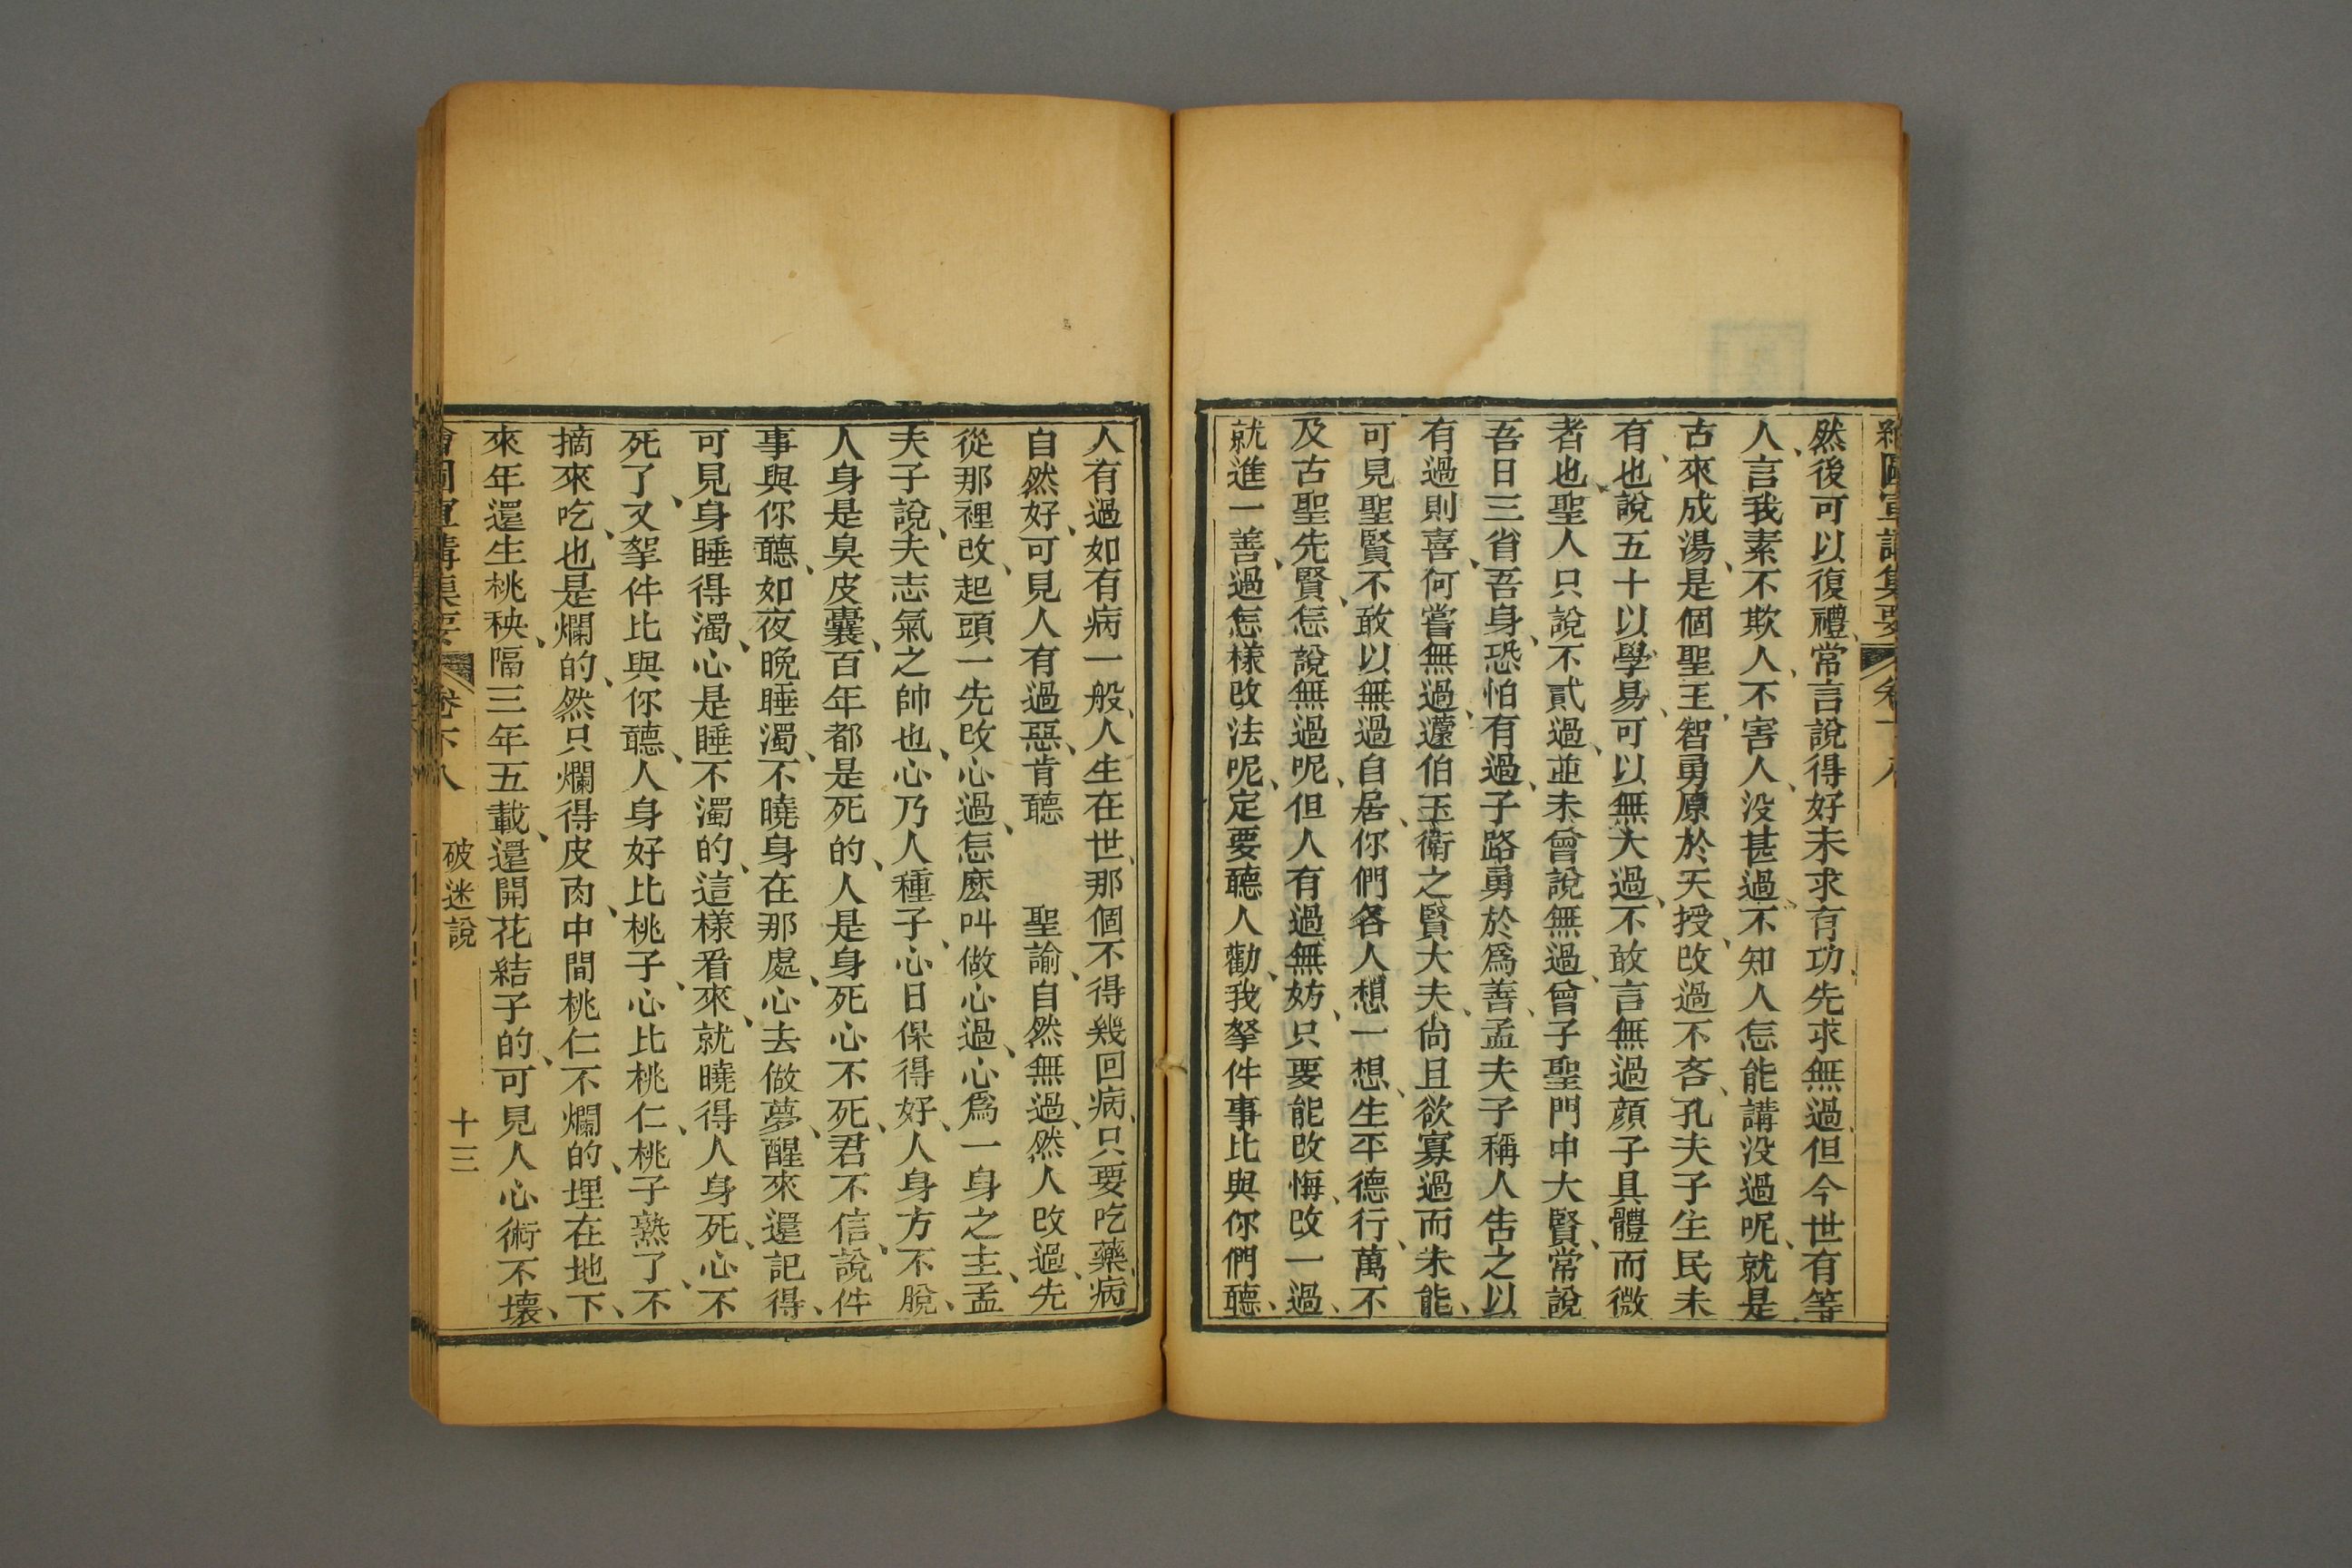 然後可以復禮、常言說得好未求有功、先求無過、但今世有等
人、言我素不欺人、不害人、没甚過、不知人怎能講没過呢、就是
古來成湯、是個聖王、智勇原於天授、改過不吝、孔夫子生民未
有、也說五十以學易、可以無大過、不敢言無過顏子具體而微
者也、聖人只說不貳過、並未曾說無過、曾子聖門中大賢、常說
吾日三省吾身、恐怕有過、子路勇於爲善、孟夫子稱人告之以
有過則喜、何嘗無過、蘧伯玉衛之賢大夫、尚且欲寡過而未能、
可見聖賢不敢以無過自居、你們各人想一想、生平德行、萬不
及古聖先賢、怎說無過呢、但人有過無妨、只要能改悔、改一過、
就進一善、過怎樣改法呢、定要聽人勸、我拏件事比與你們聽、
人有過如有病一般、人生在世、那個不得幾回病、只要吃藥、病
自然好、可見人有過惡、肯聽 聖諭、自然無過、然人改過、先
從那裡改、起頭一先改心過、怎麽叫做心過、心爲一身之主、孟
夫子說、夫志氣之帥也、心乃人種子、心日保得好、人身方不脫、
人身是臭皮囊、百年都是死的、人是身死心不死、君不信、說件
事與你聽、如夜晚睡濁、不曉身在那處、心去做夢、醒來還記得、
可見身睡得濁、心是睡不濁的、這樣看來、就曉得人身死、心不
死了、又拏件比與你聽、人身好比桃子、心比桃仁、桃子熟了、不
摘來吃、也是爛的、然只爛得皮肉、中間桃仁不爛的、埋在地下、
來年還生桃秧、隔三年五載、還開花結子的、可見人心術不壞、
破迷說
十三